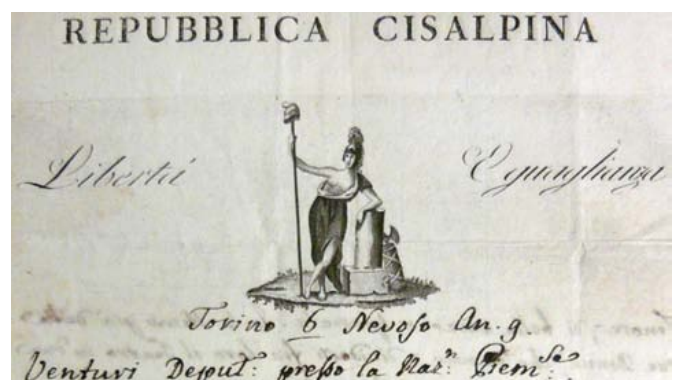 REPUBBLICA CISALPINA
Libertá Eguaglianza
Torino 6 Nevoso An. 9.
Venturi Deput: presso la Naz.n Piem.se